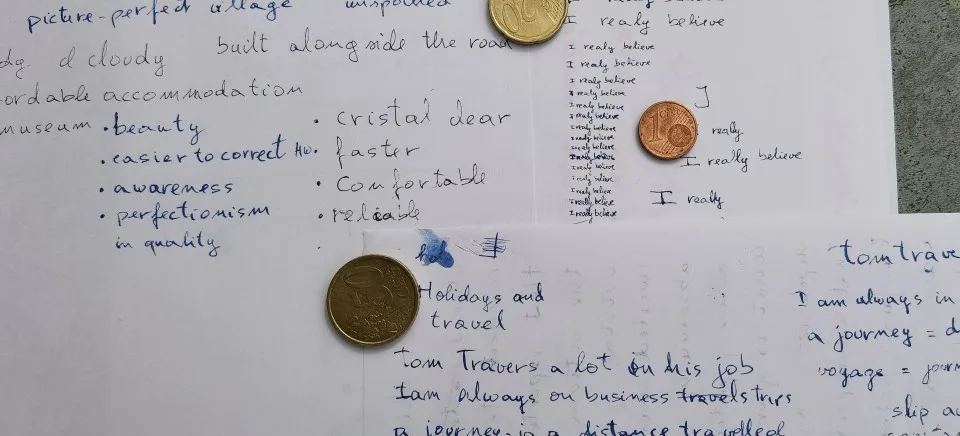 picture-perfect village unspoiled
d cloudy built alongside the road
ordable accommodation
museum
• beauty
• easier to correct Hw.
• awareness
• perfectionism
in quality
• cristal clear
• faster
• comfortable
• reliable
I realy believe
I realy believe
I realy believe
I realy believe
I realy believe
I realy believe
I realy believe
I realy believe
I realy believe
I realy believe
I realy believe
I realy believe
I realy believe
I realy believe
I realy believe
I realy believe
I realy believe
really
I really believe
I really
1
hol
Holidays and
travel
tom Travers a lot in his job
I am always on business travels trips
a journey is a distance travelled
tom trave
I am always in
a journey = d
voyage = journ